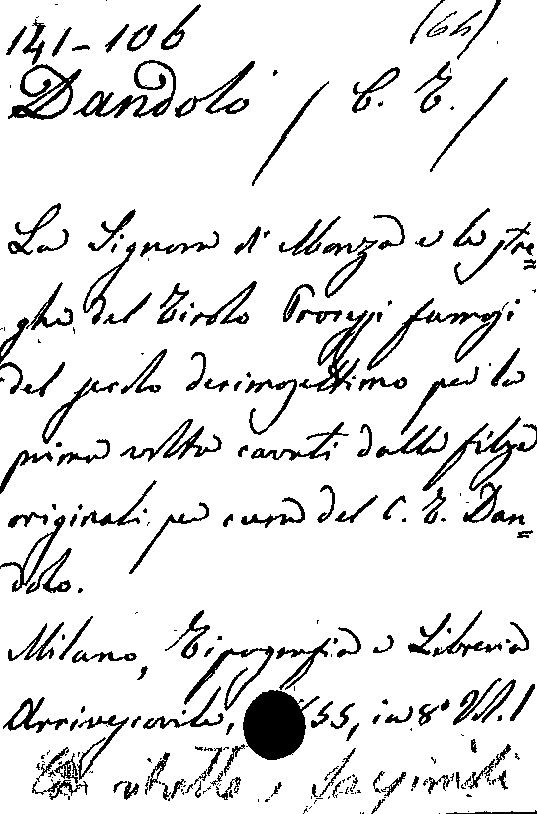 141-106 (64)
Dandolo / C. T. /
La Signora di Monza e le stre=
ghe del Tirolo Processi famosi
del secolo decimosettimo per la
prima volta cavati dalle filze
originali per cura del C. T. Dan=
dolo.
Milano, Tipografia e Libreria
Arcivescovile, 55, in 8° Vol. 1
Con ritratto e facsimili